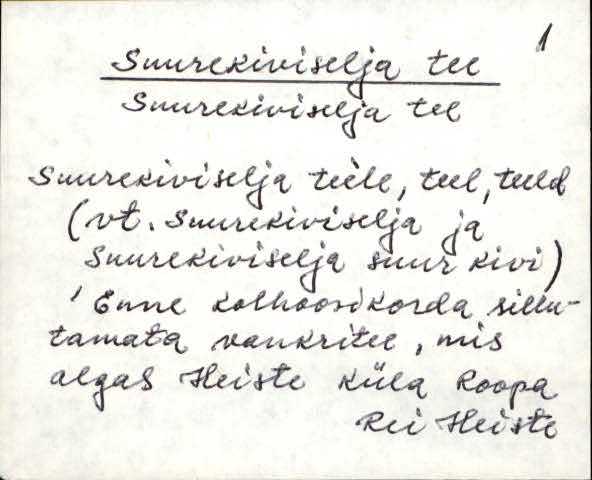 1
Suurekiviselja tee
Suurekiviselja tee
Suurekiviselja teèle, teel, teeld
(vt. Suurekiviselja ja
Suurekiviselja suur kivi)
' Enne kolhoosikorda sillu-
tamata vankritee, mis
algas Heiste küla Roopa
Rei Heiste